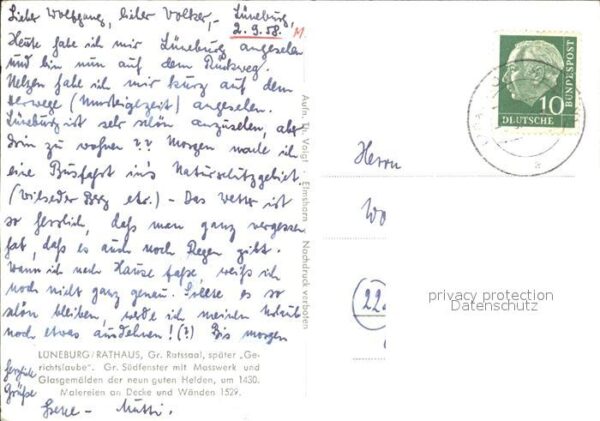 Lieber Wolfgang, lieber Volker,- Lüneburg,
2.9.58.
Heute habe ich mir Lüneburg angesehen
und bin nun auf dem Rückweg.
Uelzen habe ich mir kurz auf dem
Herwege (Umsteigezeit) angesehen.
Lüneburg ist sehr schön anzusehen, aber
drin zu wohnen?? Morgen mache ich
eine Busfahrt ins Naturschutzgebiet
(Wilseder Berg etc.) - Das Wetter ist
so herrlich, daß man ganz vergessen
hat, daß es auch noch Regen gibt.
Wann ich nach Hause fahre, weiß ich
noch nicht ganz genau. Sollte es so
schön bleiben, werde ich meinen Urlaub
noch etwas ausdehnen! (?) Bis morgen
LÜNEBURG/RATHAUS, Gr. Ratssaal, später „Ge-
richtslaube". Gr. Südfenster mit Masswerk und
Glasgemälden der neun guten Helden, um 1430.
Malereien an Decke und Wänden 1529.
herzliche
Grüße
Mutti.
Aufn. Th. Voigt · Elmshorn Nachdruck verboten
10
DEUTSCHE
BUNDESPOST
Herrn
Wo
(22
privacy protection
Datenschutz